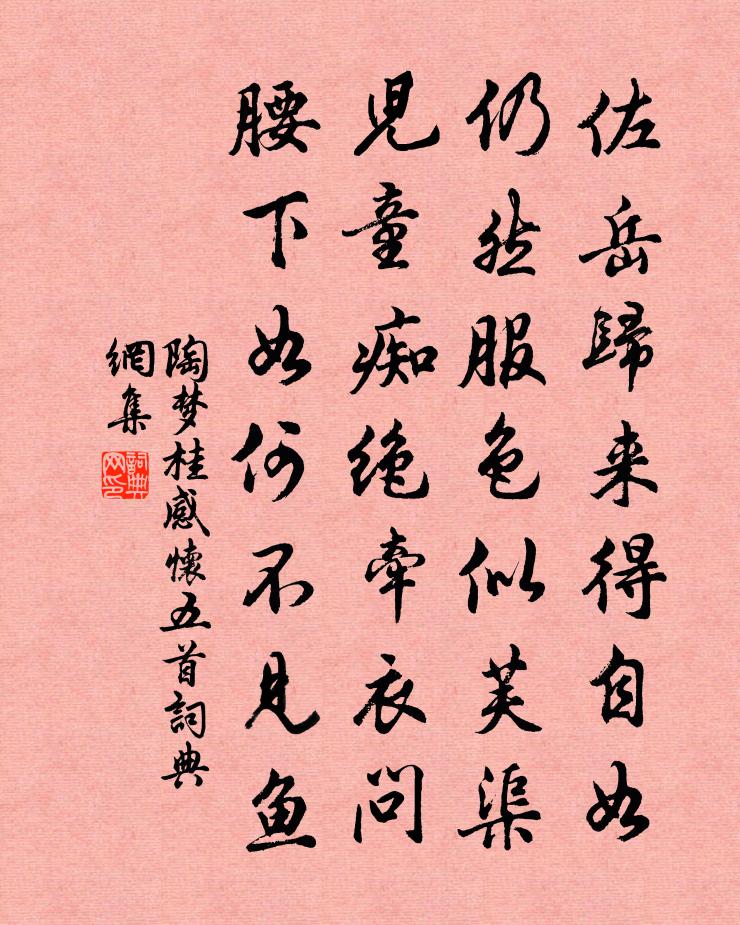 佐岳歸来得自如
仍然服色似芙渠
児童痴绝牽衣问
腰下如何不見鱼
陶梦桂感懷五首詞典
網集
詞典网印